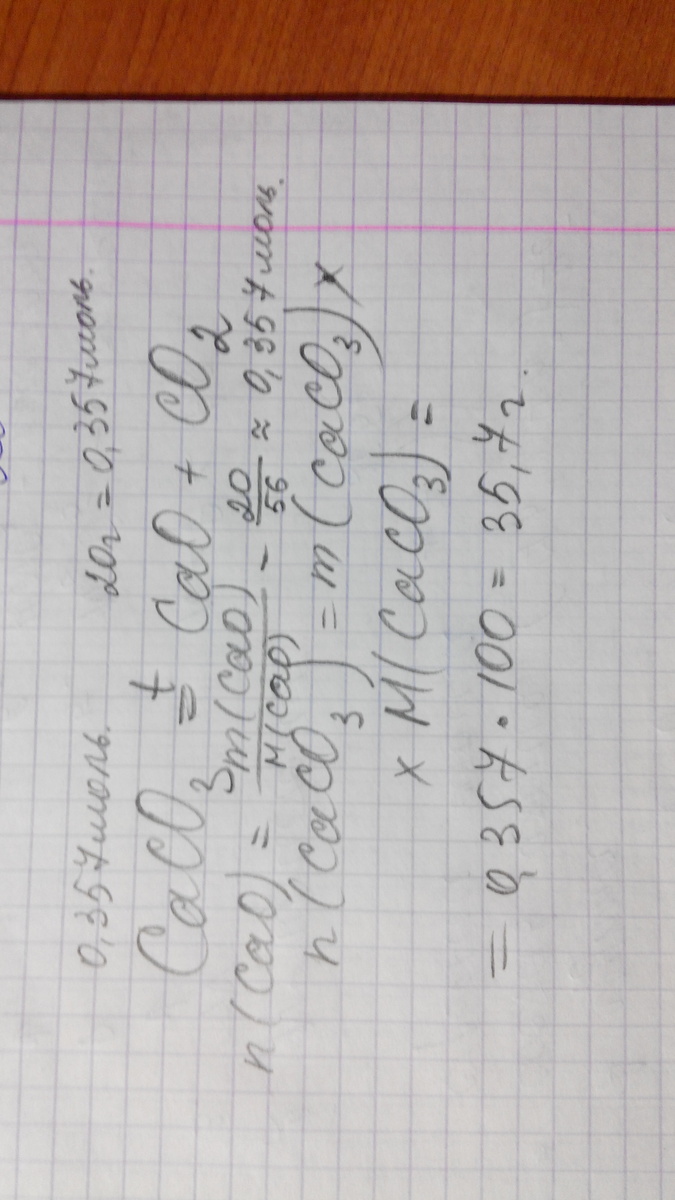 0,357моль. 20г = 0,357моль.
CaCO₃ =ᵗ CaO + CO₂
n(CaO) = m(CaO)/M(CaO) - 20/56 ≈ 0,357моль.
n(CaCO₃) = m(CaCO₃) ×
× M(CaCO₃) =
= 0,357 · 100 = 35,7г.